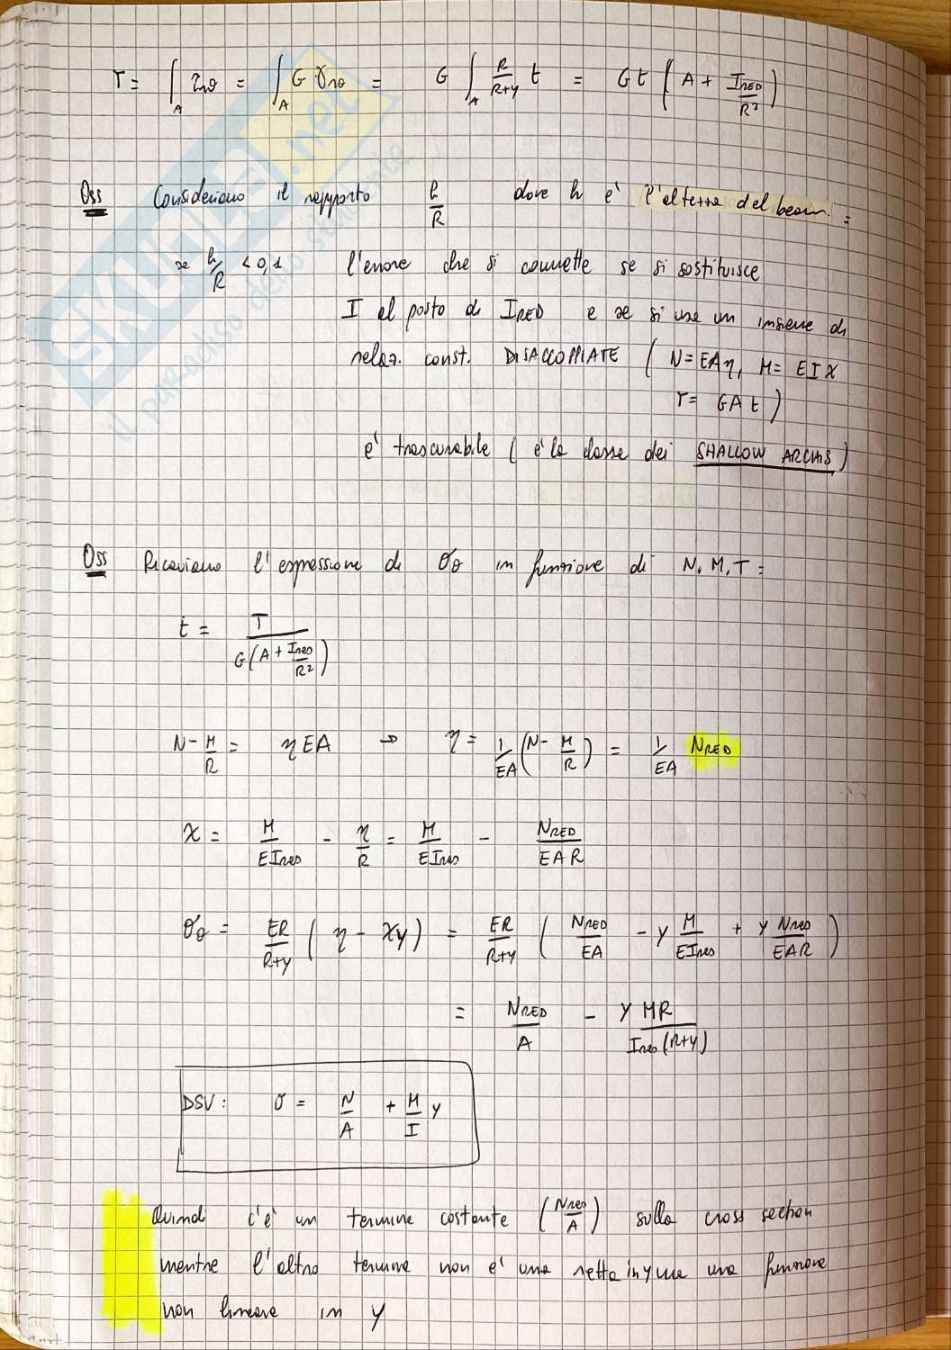 T = ∫_A τ_rθ = ∫_A G γ_rθ = G ∫_A R/(R+y) t = Gt (A + I_RED/R²)
Oss Consideriamo il rapporto h/R dove h è l'altezza del beam :
se h/R < 0,1 l'errore che si commette se si sostituisce
I al posto di I_RED e se si usa un insieme di
relaz. const. DISACCOPPIATE ( N = EAη, M = EIχ
T = GAt )
è trascurabile ( è la classe dei SHALLOW ARCHS )
Oss Ricaviamo l'espressione di σ_θ in funzione di N, M, T :
t = T / G(A + I_RED/R²)
N - M/R = ηEA → η = 1/EA (N - M/R) = 1/EA N_RED
χ = M/EI_RED - η/R = M/EI_RED - N_RED/EAR
σ_θ = ER/(R+y) ( η - χy ) = ER/(R+y) ( N_RED/EA - y M/EI_RED + y N_RED/EAR )
= N_RED/A - y MR/I_RED(R+y)
DSV : σ = N/A + M/I y
Quindi c'è un termine costante (N_RED/A) sulla cross section
mentre l'altro termine non è una retta in y ma una funzione
non lineare in y
SKUOLA.net
il paradiso dello studente